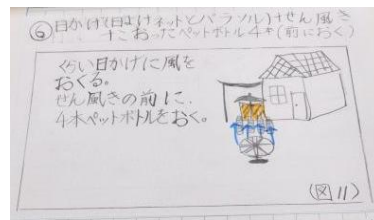 ⑥日かげ(日よけネットとパラソル)+せん風き
+こおったペットボトル4本(前におく)
くらい日かげに風を
おくる。
せん風きの前に、
4本ペットボトルをおく。
(図11)